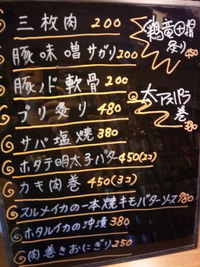 三枚肉 200
豚味噌サガリ 200
豚ノド軟骨 200
ブリ炙り 480
サバ塩焼 380
ホタテ明太子バタ 450(2コ)
カキ肉巻 450(2コ)
スルメイカの一本焼キモバターソース 780
ホタルイカの沖漬 380
肉巻きおにぎり 250
鶏竜田揚
450
大アスパラ
巻